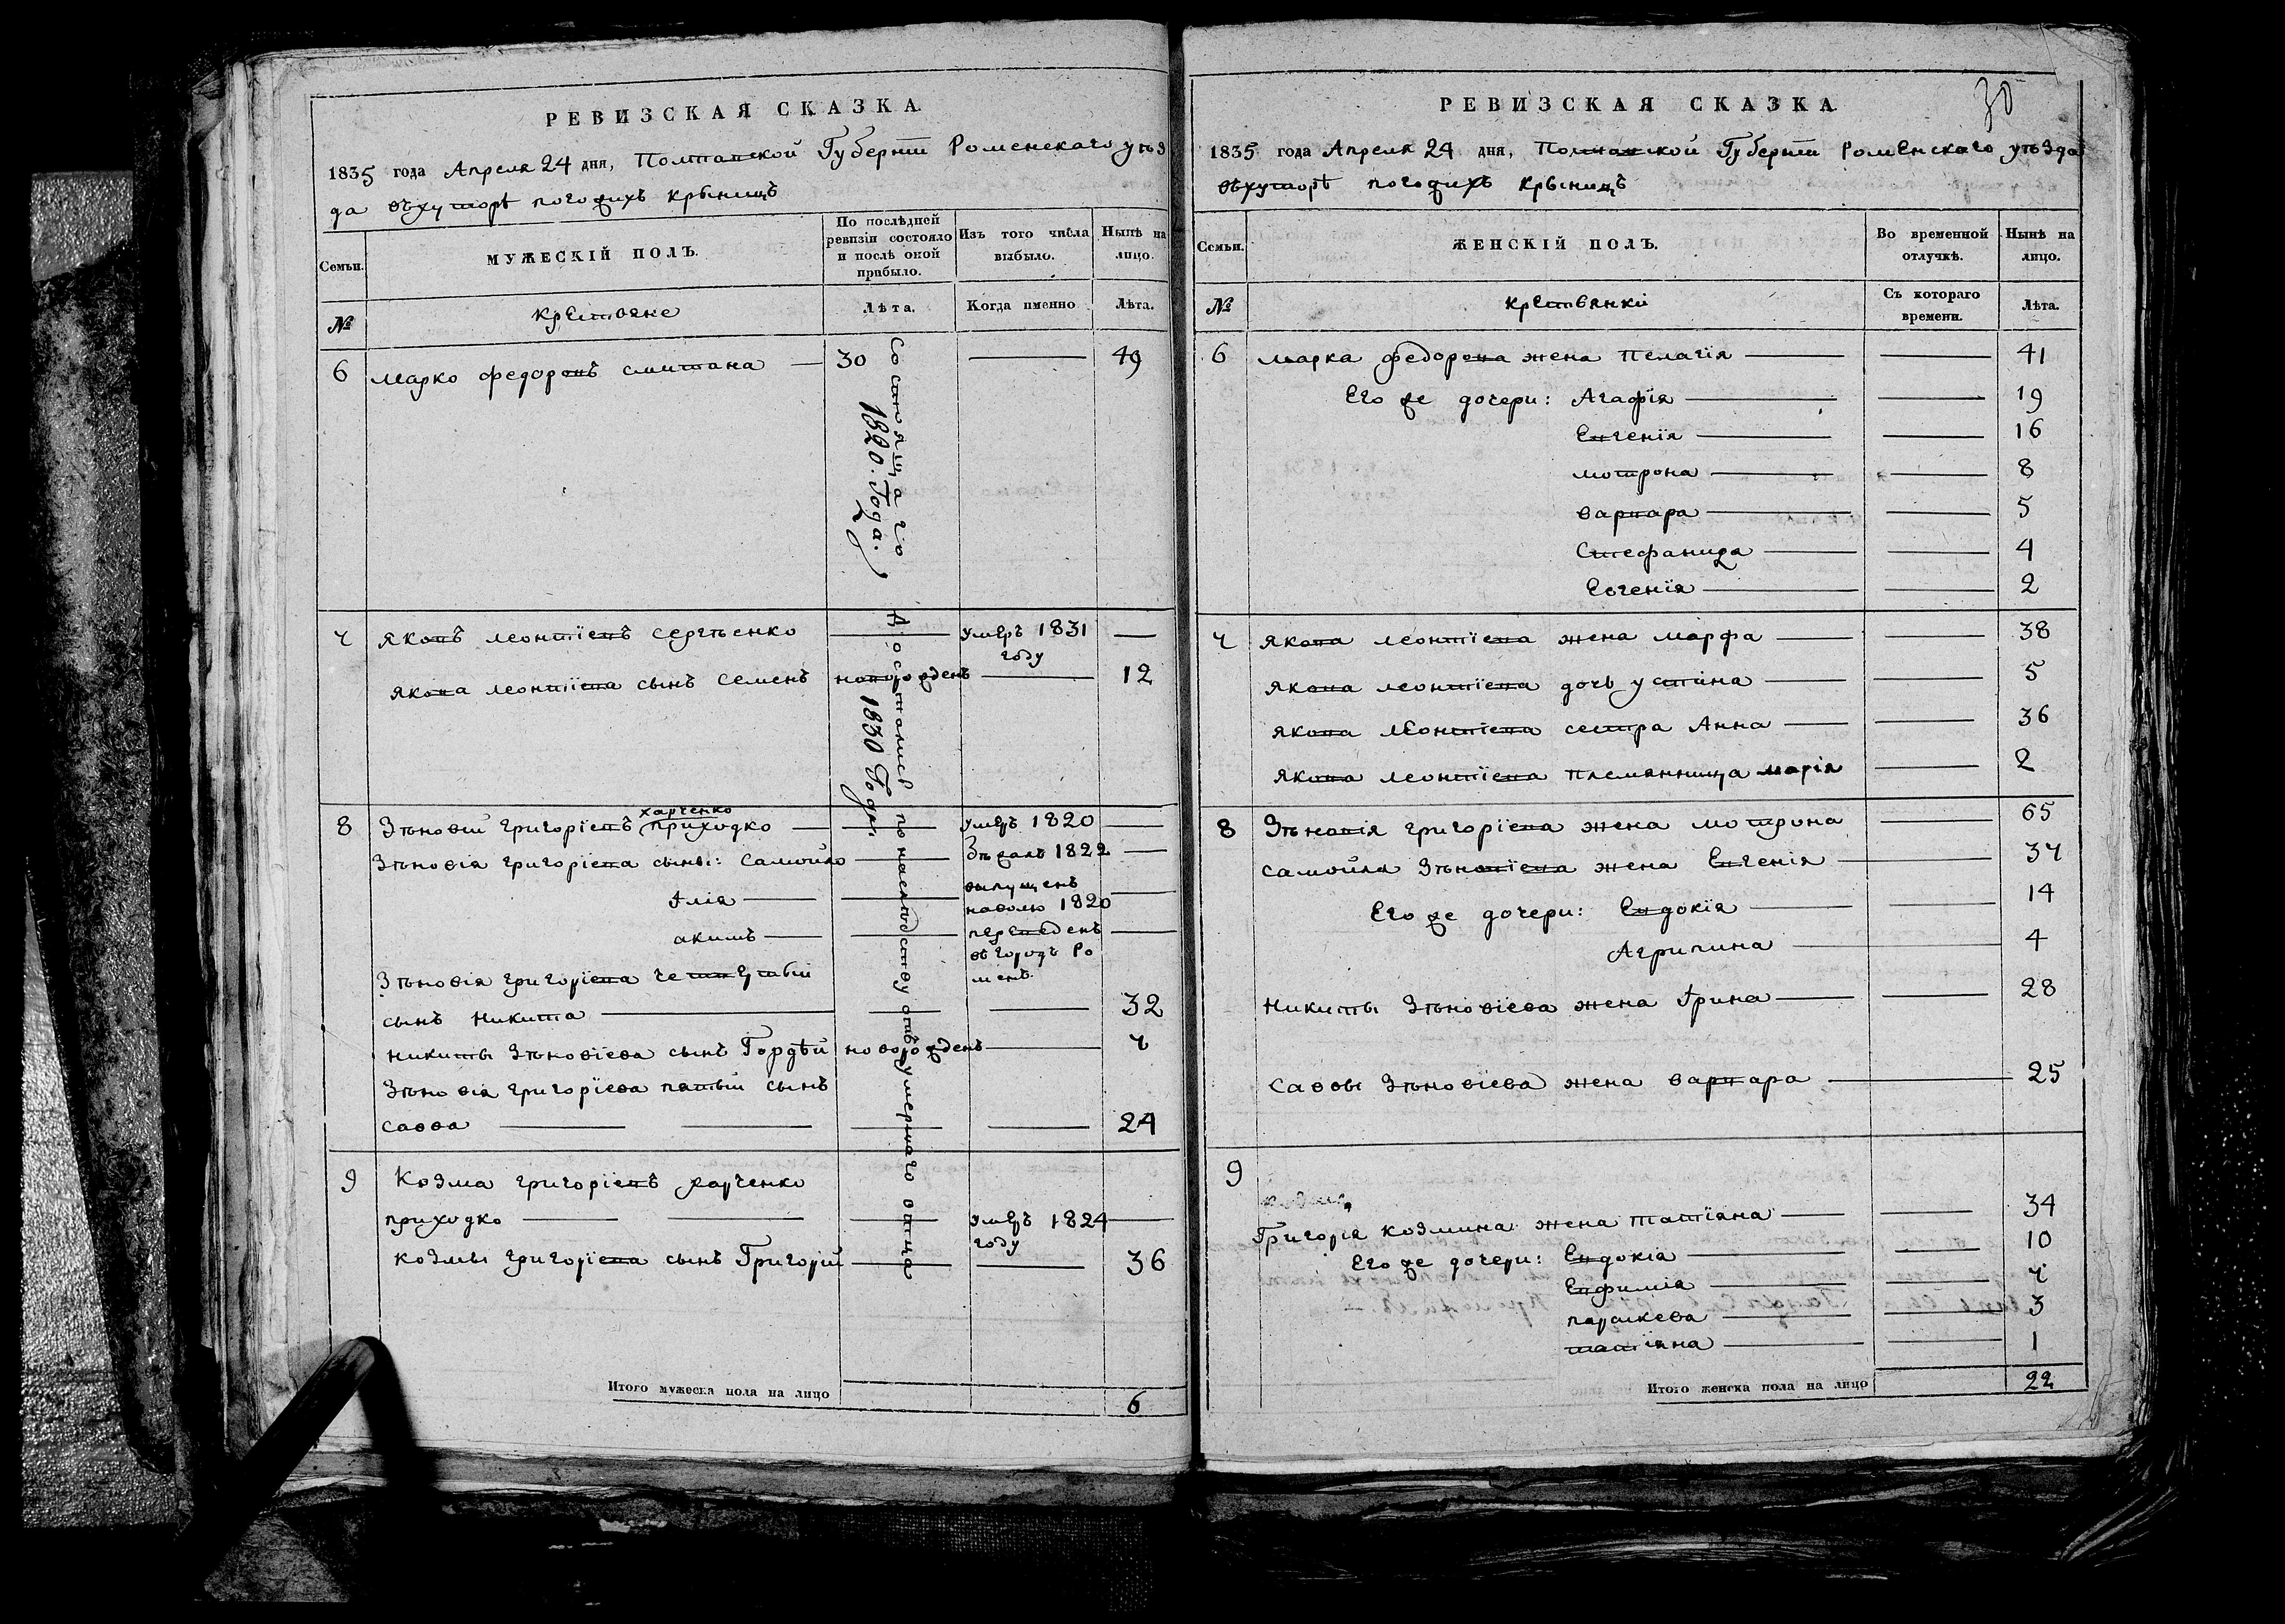 РЕВИЗСКАЯ СКАЗКА
1835 года Апреля 24 дня, Полтавской Губернїи Роменскаго уѣз
да въ хуторѣ погожихъ Крыницъ
Семьи.
МУЖЕСКІЙ ПОЛЪ.
По послѣдней ревизіи состояло и послѣ оной прибыло.
Изъ того числа выбыло.
Нынѣ на лицо.
№
крестьяне
Лѣта.
Когда именно
Лѣта.
6 Марко федоровъ смитана — 30 — 49
Состоящаго
1820. Года.
7 яковъ леонтїевъ сергѣенко — умеръ 1831 году —
якова леонтїева сынъ семенъ новорожденъ — 12
Достались по наслѣдству отъ умершаго отца
1830 Году.
харченко
8 Зѣновій григорїевъ приходко — умеръ 1820 —
Зѣновія григорїева сыны: самойло — Бѣжалъ 1822 —
Iлія — выпущенъ наволю 1820 —
акимъ — переведенъ въ городъ Ро
менъ —
Зѣновія григорїева четвертый
сынъ никита — 32
никиты Зѣновїева сынъ Гордѣй новорожденъ — 7
Зѣновія григорїева пятый сынъ
савва — 24
9 Козма григорїевъ харченко
приходко — умеръ 1824 году —
козмы григорїева сынъ Григорій — 36
Итого мужеска пола на лицо 6
РЕВИЗСКАЯ СКАЗКА
30
1835 года Апреля 24 дня, Полтавской Губернїи Роменскаго уѣзда
въ хуторѣ погожихъ крыницъ
Семьи.
ЖЕНСКІЙ ПОЛЪ.
Во временной отлучкѣ.
Нынѣ на лицо.
№
крестьянки
Съ котораго времени.
Лѣта.
6 марка федорова жена пелагїя — 41
Его же дочери: Агафїя — 19
Евгенїя — 16
мотрона — 8
варвара — 5
Стефанида — 4
Евгенїя — 2
7 якова леонтїева жена марфа — 38
якова леонтїева дочь устина — 5
якова леонтїева сестра Анна — 36
якова леонтїева племянница марїя — 2
8 Зѣновія григорїева жена мотрона — 65
самойла Зѣновїева жена Евгенїя — 37
Его же дочери: Евдокїя — 14
Агрипина — 4
никиты Зѣновїева жена Iрина — 28
саввы Зѣновїева жена варвара — 25
9
Григорїя козмина жена татїана — 34
Его же дочери: Евдокїя — 10
Евфимїя — 7
параскева — 3
татїяна — 1
Итого женска пола на лицо 22